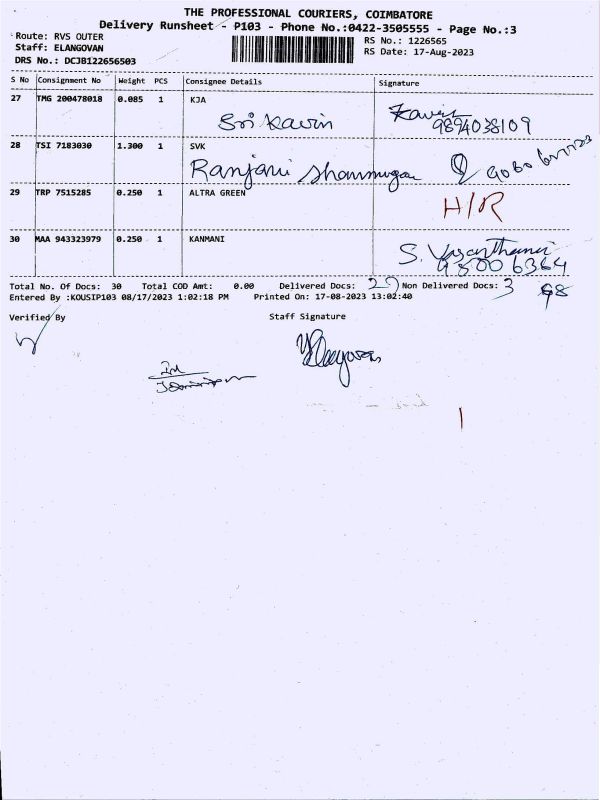 THE PROFESSIONAL COURIERS, COIMBATORE
Delivery Runsheet - P103 - Phone No.:0422-3505555 - Page No.:3
Route: RVS OUTER
RS No.: 1226565
Staff: ELANGOVAN
RS Date: 17-Aug-2023
DRS No.: DCJB122656503
S No Consignment No Weight PCS Consignee Details Signature
27 TMG 200478018 0.085 1 KJA
Sri Kavin Kavin
9894038109
28 TSI 7183030 1.300 1 SVK
Ranjani Shanmugam
29 TRP 7515285 0.250 1 ALTRA GREEN H/R
30 MAA 943323979 0.250 1 KANMANI
S. Vasanthamani
Total No. Of Docs: 30 Total COD Amt: 0.00 Delivered Docs: 27 Non Delivered Docs: 3
Entered By :KOUSIP103 08/17/2023 1:02:18 PM Printed On: 17-08-2023 13:02:40
Verified By Staff Signature